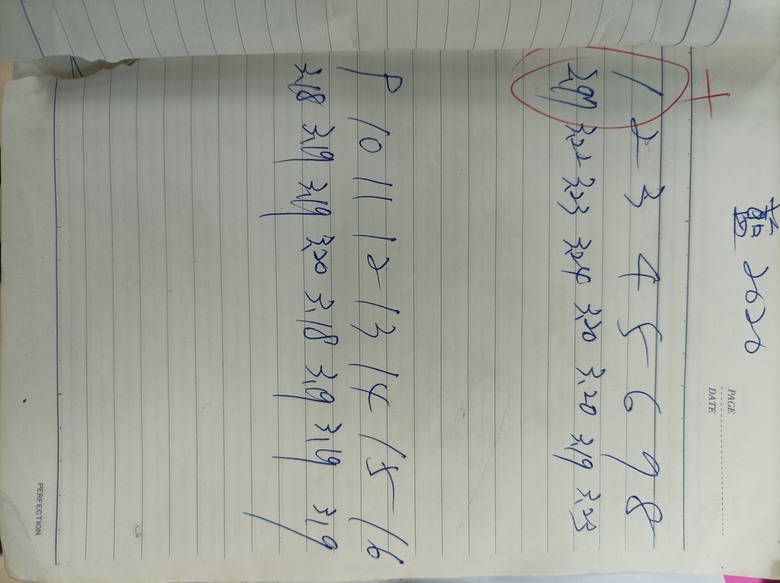 2020
PAGE
DATE
+
1 2 3 4 5 6 7 8
3.22 3.23 3.24 3.20 3.20 3.19 3.23
9 10 11 12 13 14 15 16
3.18 3.19 3.19 3.20 3.18 3.19 3.19 3.19
PERFECTION